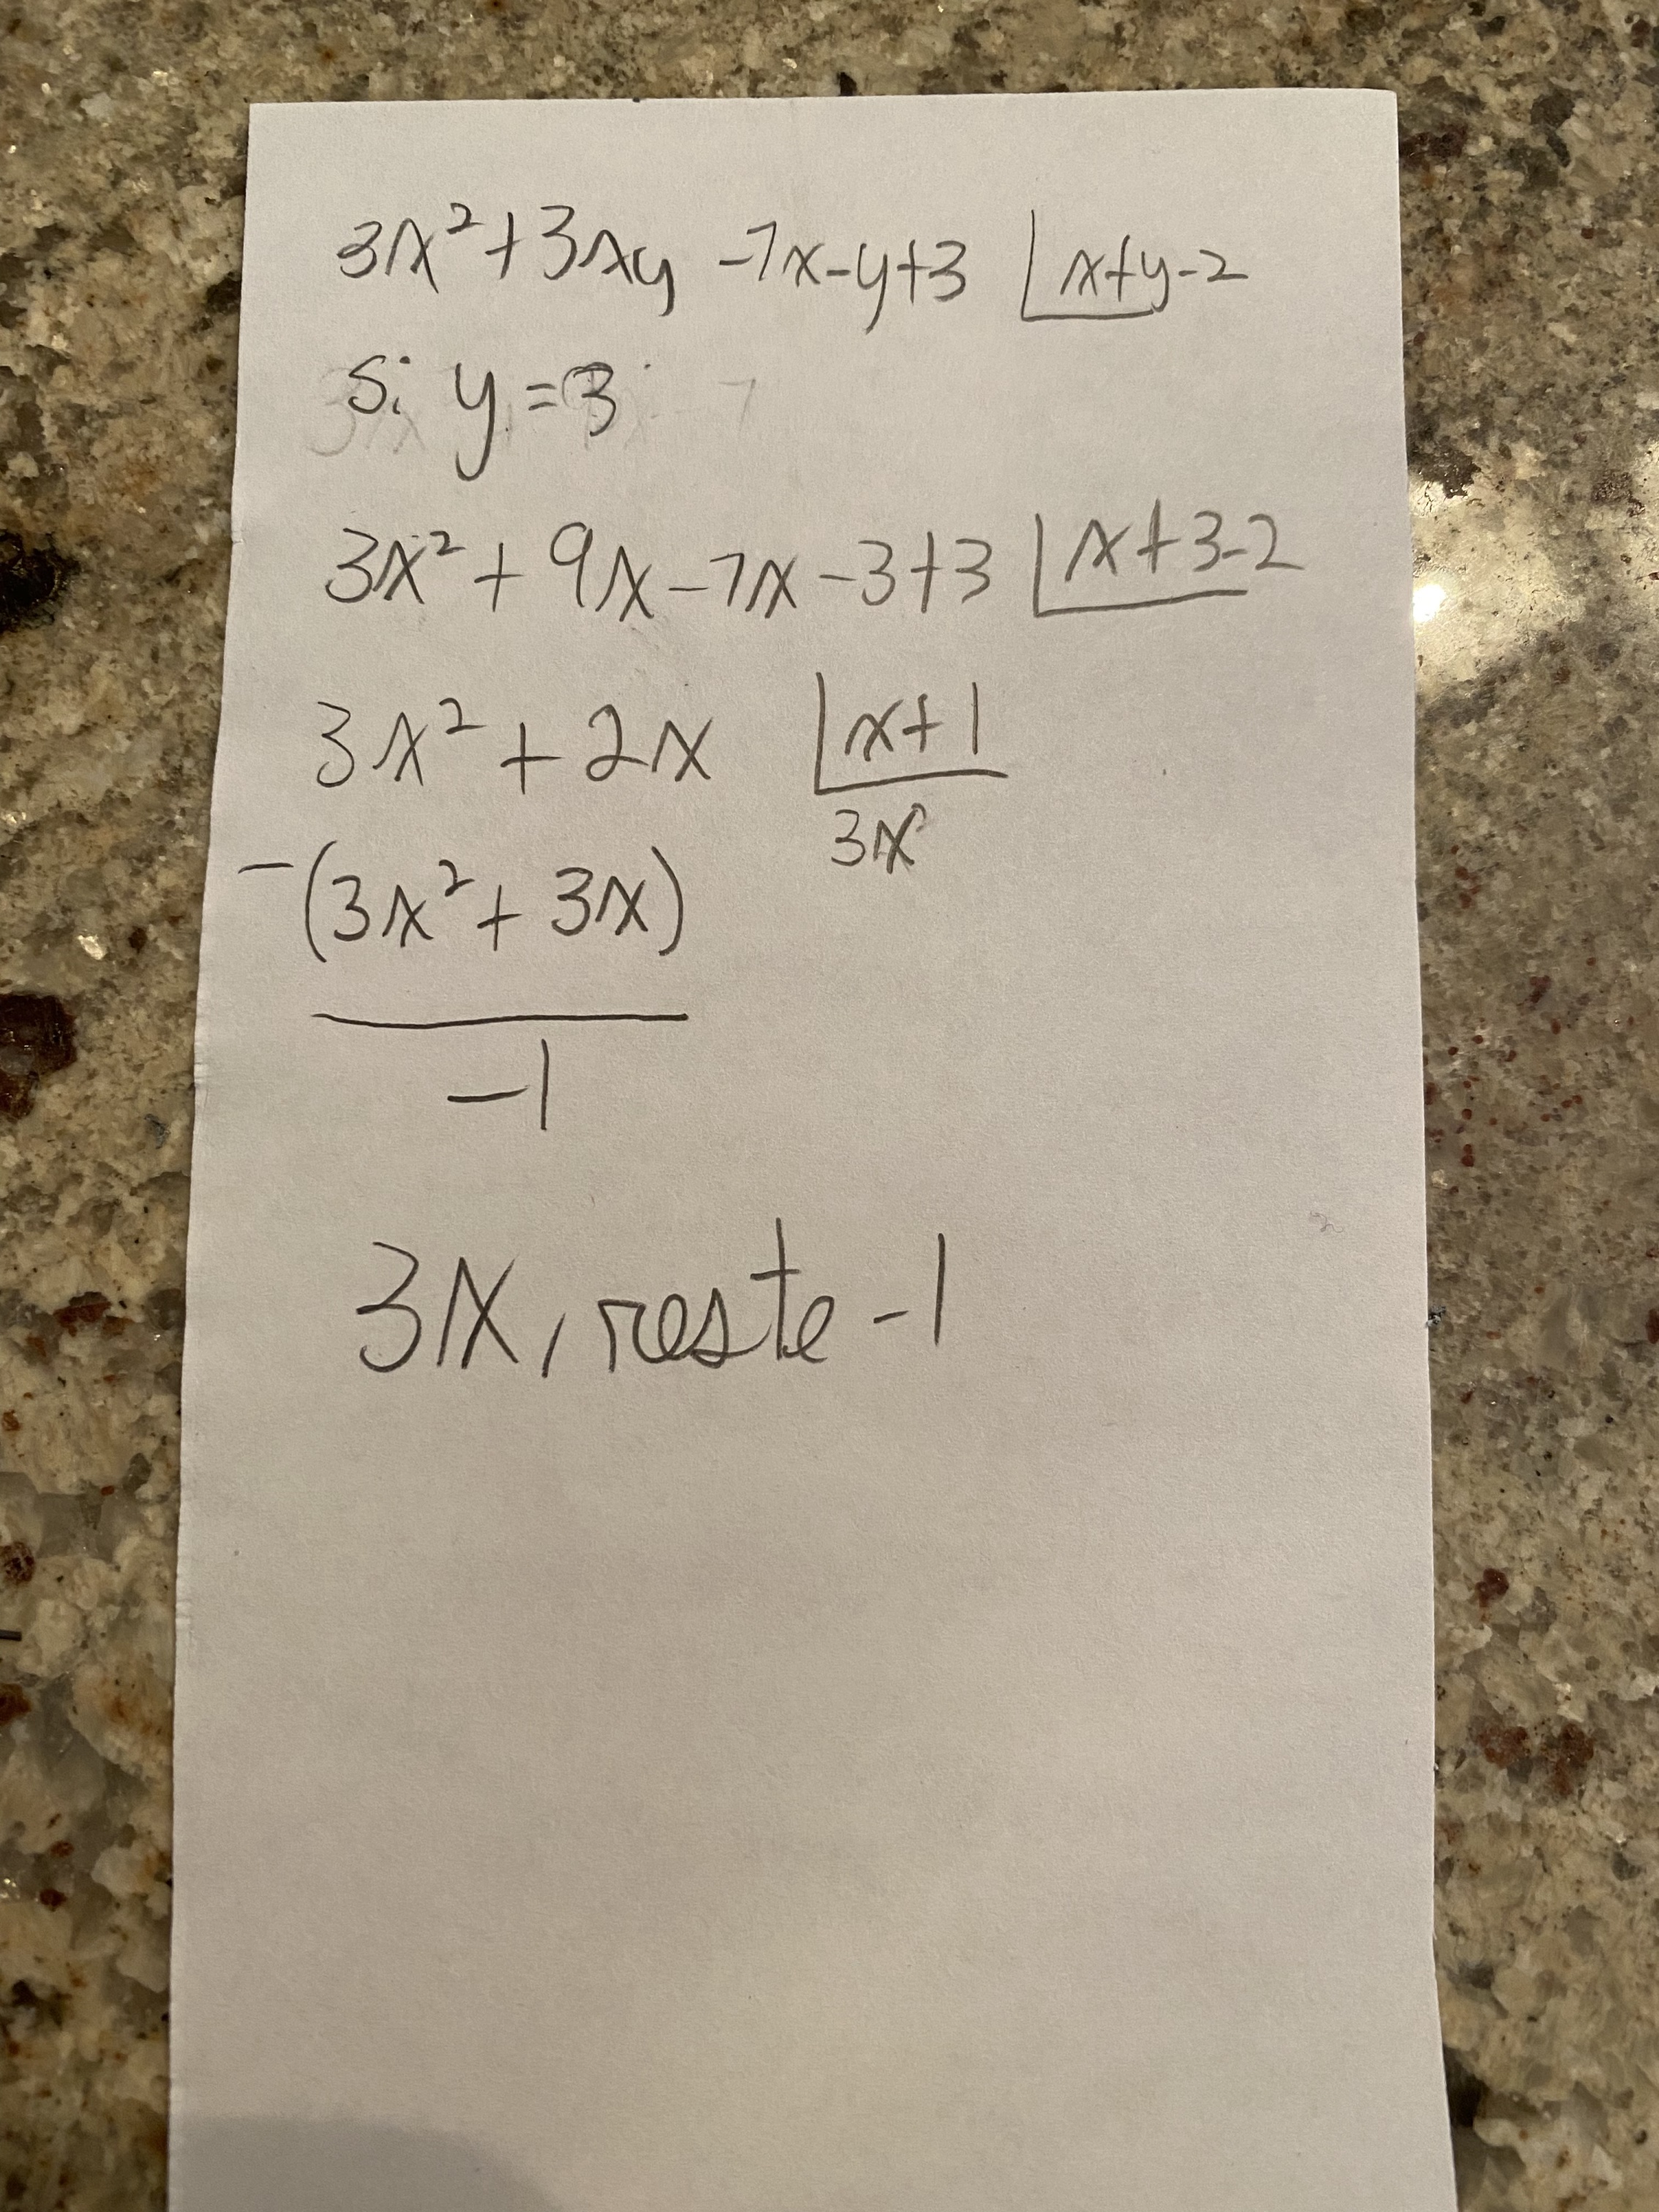 3x²+3xy -7x-y+3 |x+y-2
si y=3
3x² + 9x-7x-3+3 |x+3-2
3x² + 2x |x+1
3x
-(3x²+3x)
-1
3x, reste -1